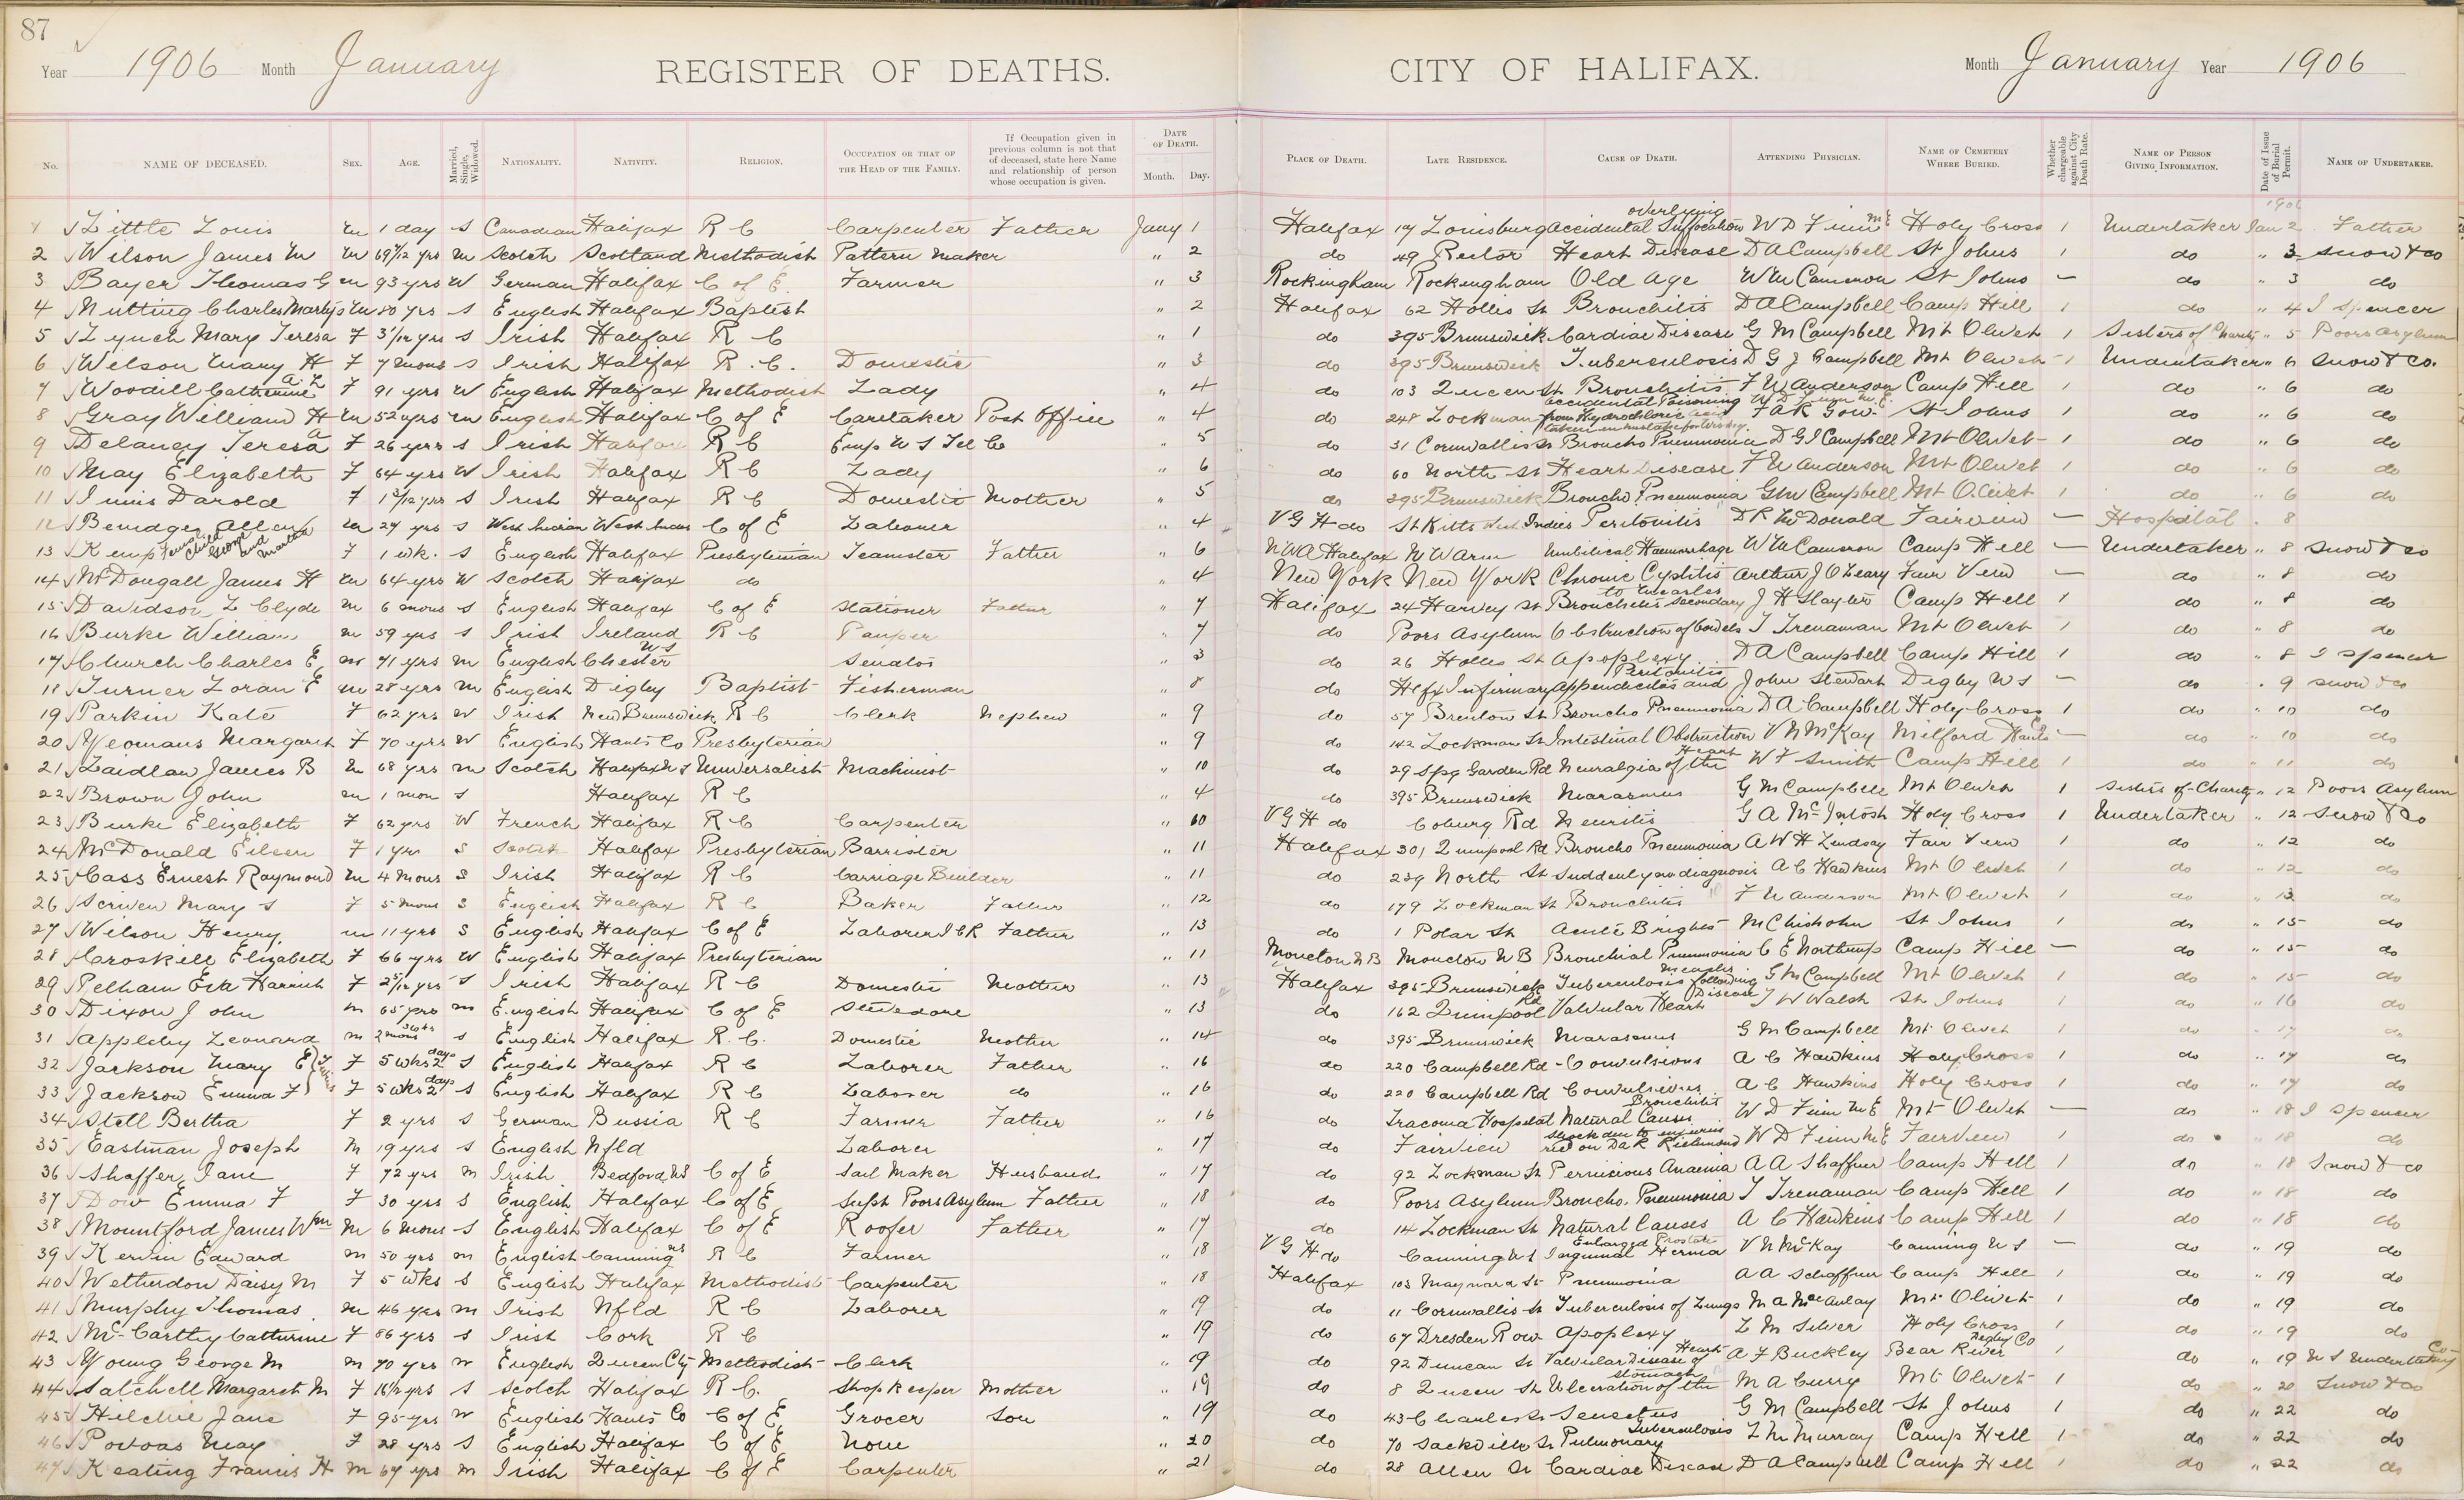 87
Year 1906 Month January REGISTER OF DEATHS. CITY OF HALIFAX. Month January Year 1906
No. NAME OF DECEASED. SEX. AGE. Married, Single, Widowed. NATIONALITY. NATIVITY. RELIGION. OCCUPATION OR THAT OF THE HEAD OF THE FAMILY. If Occupation given in previous column is not that of deceased, state here Name and relationship of person whose occupation is given. DATE OF DEATH. Month. Day. PLACE OF DEATH. LATE RESIDENCE. CAUSE OF DEATH. ATTENDING PHYSICIAN. NAME OF CEMETERY WHERE BURIED. Whether chargeable against City Death Rate. NAME OF PERSON GIVING INFORMATION. Date of Issue of Burial Permit. NAME OF UNDERTAKER.
1906
1 Little Louis m 1 day S Canadian Halifax R C Carpenter Father Jany 1 Halifax 17 Louisburg accidental overlying Suffocation W D Finn M E Holy Cross 1 Undertaker Jan 2 Father
2 Wilson James M m 69 yrs m Scotch Scotland Methodist Pattern Maker " 2 do 49 Rector Heart Disease D A Campbell St Johns 1 do " 3 Snow & Co
3 Bayer Thomas G m 93 yrs W German Halifax C of E. Farmer " 3 Rockingham Rockingham Old age W M Cameron St Johns — do " 3 do
4 Nutting Charles m 80 yrs S English Halifax Baptist " 2 Halifax 62 Hollis St Bronchitis D A Campbell Camp Hill 1 do " 4 I Spencer
5 Lynch Mary Teresa F 3 1/12 yrs S Irish Halifax R C " 1 do 395 Brunswick Cardiac Disease G M Campbell Mt Olivet 1 Sisters of Charity " 5 Poors Asylum
6 Wilson Mary H F 7 mons S Irish Halifax R. C. Domestic " 3 do 395 Brunswick Tuberculosis D G J Campbell Mt Olivet 1 Undertaker " 6 Snow & Co.
7 Woodill Catherine A. L F 91 yrs W English Halifax Methodist Lady " 4 do 103 Queen St Bronchitis F U Anderson Camp Hill 1 do " 6 do
8 Gray William H m 52 yrs m English Halifax C of E Caretaker Post Office " 4 do 248 Lockman accidental Poisoning from Hydrochloric acid taken in mistake for whiskey W D Finn M. E. F A R Gow St Johns 1 do " 6 do
9 Delaney Teresa A F 26 yrs S Irish Halifax R C Emp N S Tel Co " 5 do 31 Cornwallis St Broncho Pneumonia D G J Campbell Mt Olivet 1 do " 6 do
10 May Elizabeth F 64 yrs W Irish Halifax R C Lady " 6 do 60 North St Heart Disease F U Anderson Mt Olivet 1 do " 6 do
11 Innis Darold F 1 yrs S Irish Halifax R C Domestic Mother " 5 do 395 Brunswick Broncho Pneumonia G M Campbell Mt Olivet 1 do " 6 do
12 Allen m 27 yrs S West Indian West Indies C of E Laborer " 4 V G H do St Kitts West Indies Peritonitis D R McDonald Fairview — Hospital " 8
13 Kemp Female child George and Martha F 1 wk. S English Halifax Presbyterian Teamster Father " 6 N W A Halifax N W Arm Umbilical Haemorrhage W M Cameron Camp Hill — Undertaker " 8 Snow & Co
14 McDougall James H m 64 yrs W Scotch Halifax do " 4 New York New York Chronic Cystitis Arthur J O'Leary Fair View — do " 8 do
15 Davidson L Clyde m 6 mons S English Halifax C of E Stationer Father " 7 Halifax 24 Harvey St Bronchitis secondary to measles J H Slayter Camp Hill 1 do " 8 do
16 Burke William m 59 yrs S Irish Ireland R C Pauper " 7 do Poors Asylum Obstruction of bowels T Trenaman Mt Olivet 1 do " 8 do
17 Church Charles E m 71 yrs m English Chester N S Senator " 3 do 26 Hollis St Apoplexy D A Campbell Camp Hill 1 do " 8 I Spencer
18 Turner Loran E m 28 yrs m English Digby Baptist Fisherman " 8 do Hfx Infirmary Appendicitis and Peritonitis John Stewart Digby N S — do " 9 Snow & Co
19 Parkin Kate F 62 yrs W Irish New Brunswick R C Clerk Nephew " 9 do 57 Brenton St Broncho Pneumonia D A Campbell Holy Cross 1 do " 10 do
20 Yeomans Margaret F 70 yrs W English Hants Co Presbyterian " 9 do 142 Lockman St Intestinal Obstruction V N McKay Milford Hants Co — do " 10 do
21 Laidlaw James B m 68 yrs m Scotch Halifax N S Universalist Machinist " 10 do 29 Spg Garden Rd Neuralgia of the Heart W F Smith Camp Hill 1 do " 11 do
22 Brown John m 1 mon S Halifax R C " 4 do 395 Brunswick Marasmus G M Campbell Mt Olivet 1 Sisters of Charity " 12 Poors Asylum
23 Burke Elizabeth F 62 yrs W French Halifax R C Carpenter " 10 V G H do Coburg Rd Neuritis G A McIntosh Holy Cross 1 Undertaker " 12 Snow & Co
24 McDonald Eileen F 1 yr S Scotch Halifax Presbyterian Barrister " 11 Halifax 301 Quinpool Rd Broncho Pneumonia A W H Lindsay Fair View 1 do " 12 do
25 Cass Ernest Raymond m 4 mons S Irish Halifax R C Carriage Builder " 11 do 239 North St Suddenly no diagnosis A C Hawkins Mt Olivet 1 do " 12 do
26 Scriven Mary S F 5 mons S English Halifax R C Baker Father " 12 do 179 Lockman St Bronchitis F U Anderson Mt Olivet 1 do " 13 do
27 Wilson Henry m 11 yrs S English Halifax C of E Laborer I C R Father " 13 do 1 Polar St Acute Brights M Chisholm St Johns 1 do " 15 do
28 Croskill Elizabeth F 66 yrs W English Halifax Presbyterian " 11 Moncton N B Moncton N B Bronchial Pneumonia C E Northrup Camp Hill — do " 15 do
29 Pelham Eva Harriet F 2 5/12 yrs S Irish Halifax R C Domestic Mother " 13 Halifax 395 Brunswick Tuberculosis following Measles G M Campbell Mt Olivet 1 do " 15 do
30 Dixon John m 65 yrs m English Halifax C of E Stevedore " 13 do 162 Quinpool Rd Valvular Heart Disease T W Walsh St Johns 1 do " 16 do
31 Appleby Leonard m 2 mons 3 wks S English Halifax R. C. Domestic Mother " 14 do 395 Brunswick Marasmus G M Campbell Mt Olivet 1 do " 17 do
32 Jackson Mary E } Twins F 5 wks 2 days S English Halifax R C Laborer Father " 16 do 220 Campbell Rd Convulsions A C Hawkins Holy Cross 1 do " 17 do
33 Jackson Emma F F 5 wks 2 days S English Halifax R C Laborer do " 16 do 220 Campbell Rd Convulsions A C Hawkins Holy Cross 1 do " 17 do
34 Stell Bertha F 2 yrs S German Russia R C Farmer Father " 16 do Tracoma Hospital Natural Causes Bronchitis W D Finn M E Mt Olivet — do " 18 I Spencer
35 Eastman Joseph m 19 yrs S English Nfld Laborer " 17 do Fairview Shock due to injuries on D A R Richmond W D Finn M E Fairview do " 18 do
36 Shaffer Jane F 72 yrs m Irish Bedford N S C of E Sail Maker Husband " 17 do 92 Lockman St Pernicious Anaemia A A Shaffner Camp Hill 1 do " 18 Snow & Co
37 Dow Emma F F 30 yrs S English Halifax C of E Supt Poors Asylum Father " 18 do Poors Asylum Broncho Pneumonia T Trenaman Camp Hill 1 do " 18 do
38 Mountford James Wm m 6 mons S English Halifax C of E Roofer Father " 17 do 14 Lockman St Natural Causes A C Hawkins Camp Hill 1 do " 18 do
39 Kerwin Edward m 50 yrs m English Canning N S R C Farmer " 18 V G H do Canning N S Inguinal Hernia Enlarged Prostate V N McKay Canning N S — do " 19 do
40 Wetherdon Daisy M F 5 wks S English Halifax Methodist Carpenter " 18 Halifax 103 Maynard St Pneumonia A A Schaffner Camp Hill 1 do " 19 do
41 Murphy Thomas m 46 yrs m Irish Nfld R C Laborer " 19 do 11 Cornwallis St Tuberculosis of Lungs M A MacAulay Mt Olivet 1 do " 19 do
42 McCarthy Catherine F 86 yrs S Irish Cork R C " 19 do 67 Dresden Row Apoplexy L M Silver Holy Cross 1 do " 19 do
43 Young George M m 70 yrs English Queen Cty Methodist Clerk " 19 do 92 Duncan St Valvular Disease of Heart A F Buckley Bear River Digby Co 1 do " 19 N S Undertaking Co
44 Satchell Margaret M F yrs S Scotch Halifax R C. Shopkeeper Mother " 19 do 8 Queen St Ulceration of the stomach M A Curry Mt Olivet 1 do " 20 Snow & Co
45 Hilchie Jane F 95 yrs W English Hants Co C of E Grocer Son " 19 do 43 Charles St Senectus G M Campbell St Johns 1 do " 22 do
46 May F 28 yrs S English Halifax C of E None " 20 do 70 Sackville St Pulmonary Tuberculosis L M Murray Camp Hill 1 do " 22 do
47 Keating Francis H m 67 yrs m Irish Halifax C of E Carpenter " 21 do 28 Allen St Cardiac Disease D A Campbell Camp Hill 1 do " 22 do